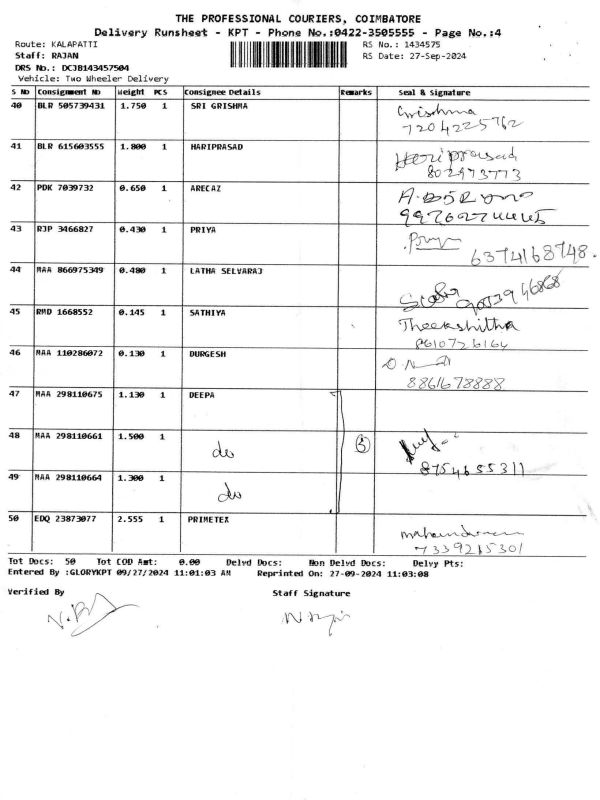 THE PROFESSIONAL COURIERS, COIMBATORE
Delivery Runsheet - KPT - Phone No.:0422-3505555 - Page No.:4
Route: KALAPATTI RS No.: 1434575
Staff: RAJAN RS Date: 27-Sep-2024
DRS No.: DCJB143457504
Vehicle: Two Wheeler Delivery
S No Consignment No Weight PCS Consignee Details Remarks Seal & Signature
40 BLR 505739431 1.750 1 SRI GRISHMA
7204225762
41 BLR 615603555 1.800 1 HARIPRASAD Hariprasad
802973773
42 PDK 7039732 0.650 1 ARECAZ
43 RJP 3466827 0.430 1 PRIYA
6374168748.
44 MAA 866975349 0.480 1 LATHA SELVARAJ
45 RMD 1668552 0.145 1 SATHIYA Theekshitha
8610726164
46 MAA 110286072 0.130 1 DURGESH
8861678888
47 MAA 298110675 1.130 1 DEEPA
48 MAA 298110661 1.500 1 do 3
8754655311
49 MAA 298110664 1.300 1 do
50 EDQ 23873077 2.555 1 PRIMETEX
7339215301
Tot Docs: 50 Tot COD Amt: 0.00 Delvd Docs: Non Delvd Docs: Delvy Pts:
Entered By :GLORYKPT 09/27/2024 11:01:03 AM Reprinted On: 27-09-2024 11:03:08
Verified By Staff Signature